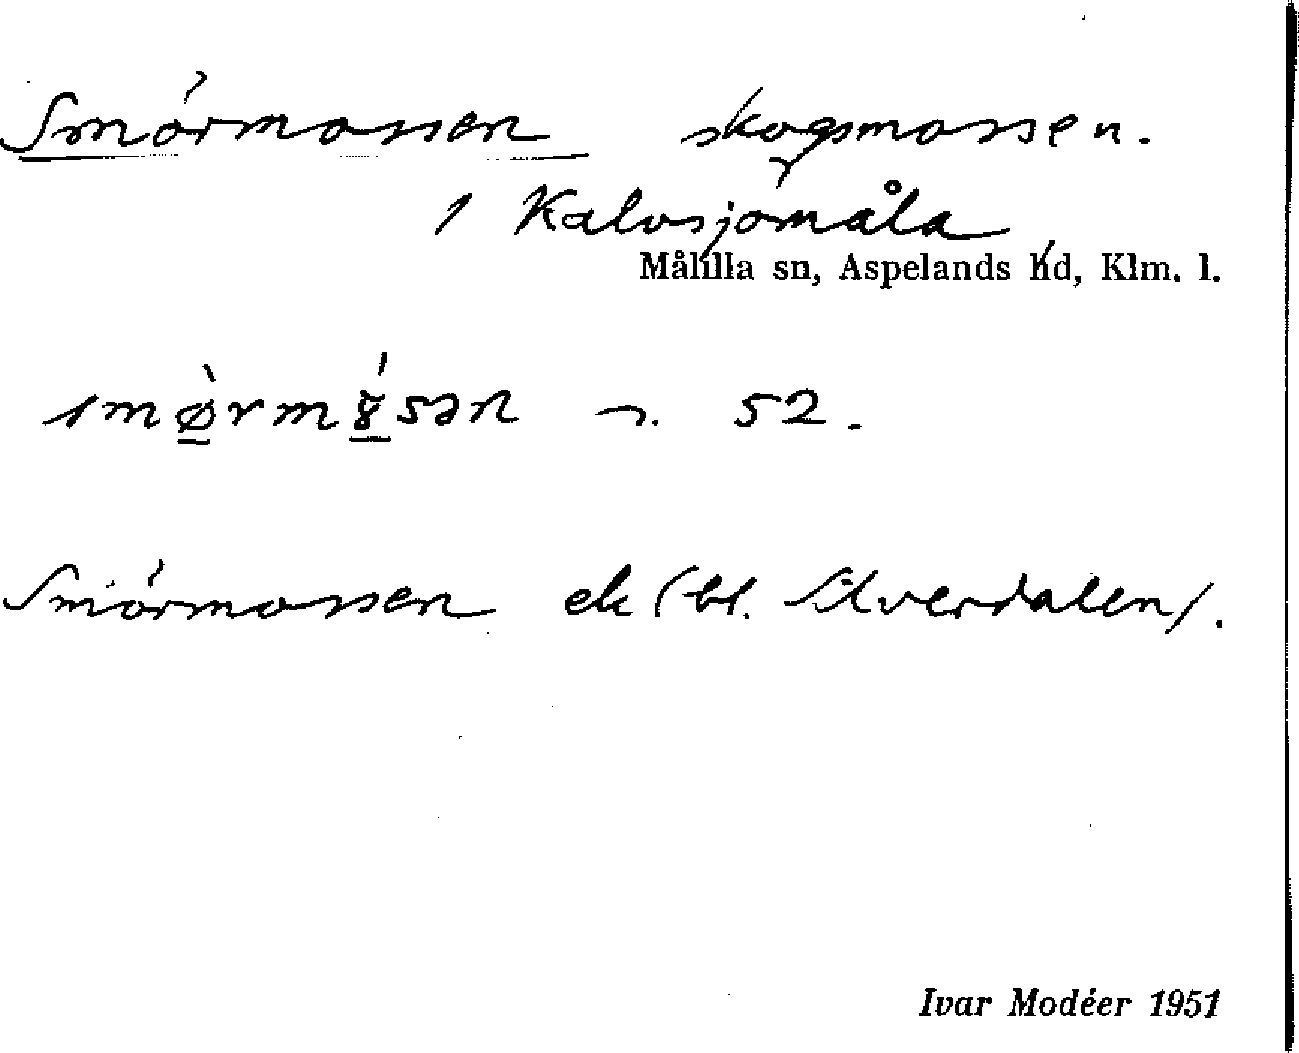 Smörmossen skogsmossen.
1 Kalvsjömåla
Målilla sn, Aspelands hd, Klm. l.
smø̀rmɤ́sən ⁓. 52.
Smörmossen ek (bl. Silverdalen).
Ivar Modéer 1951